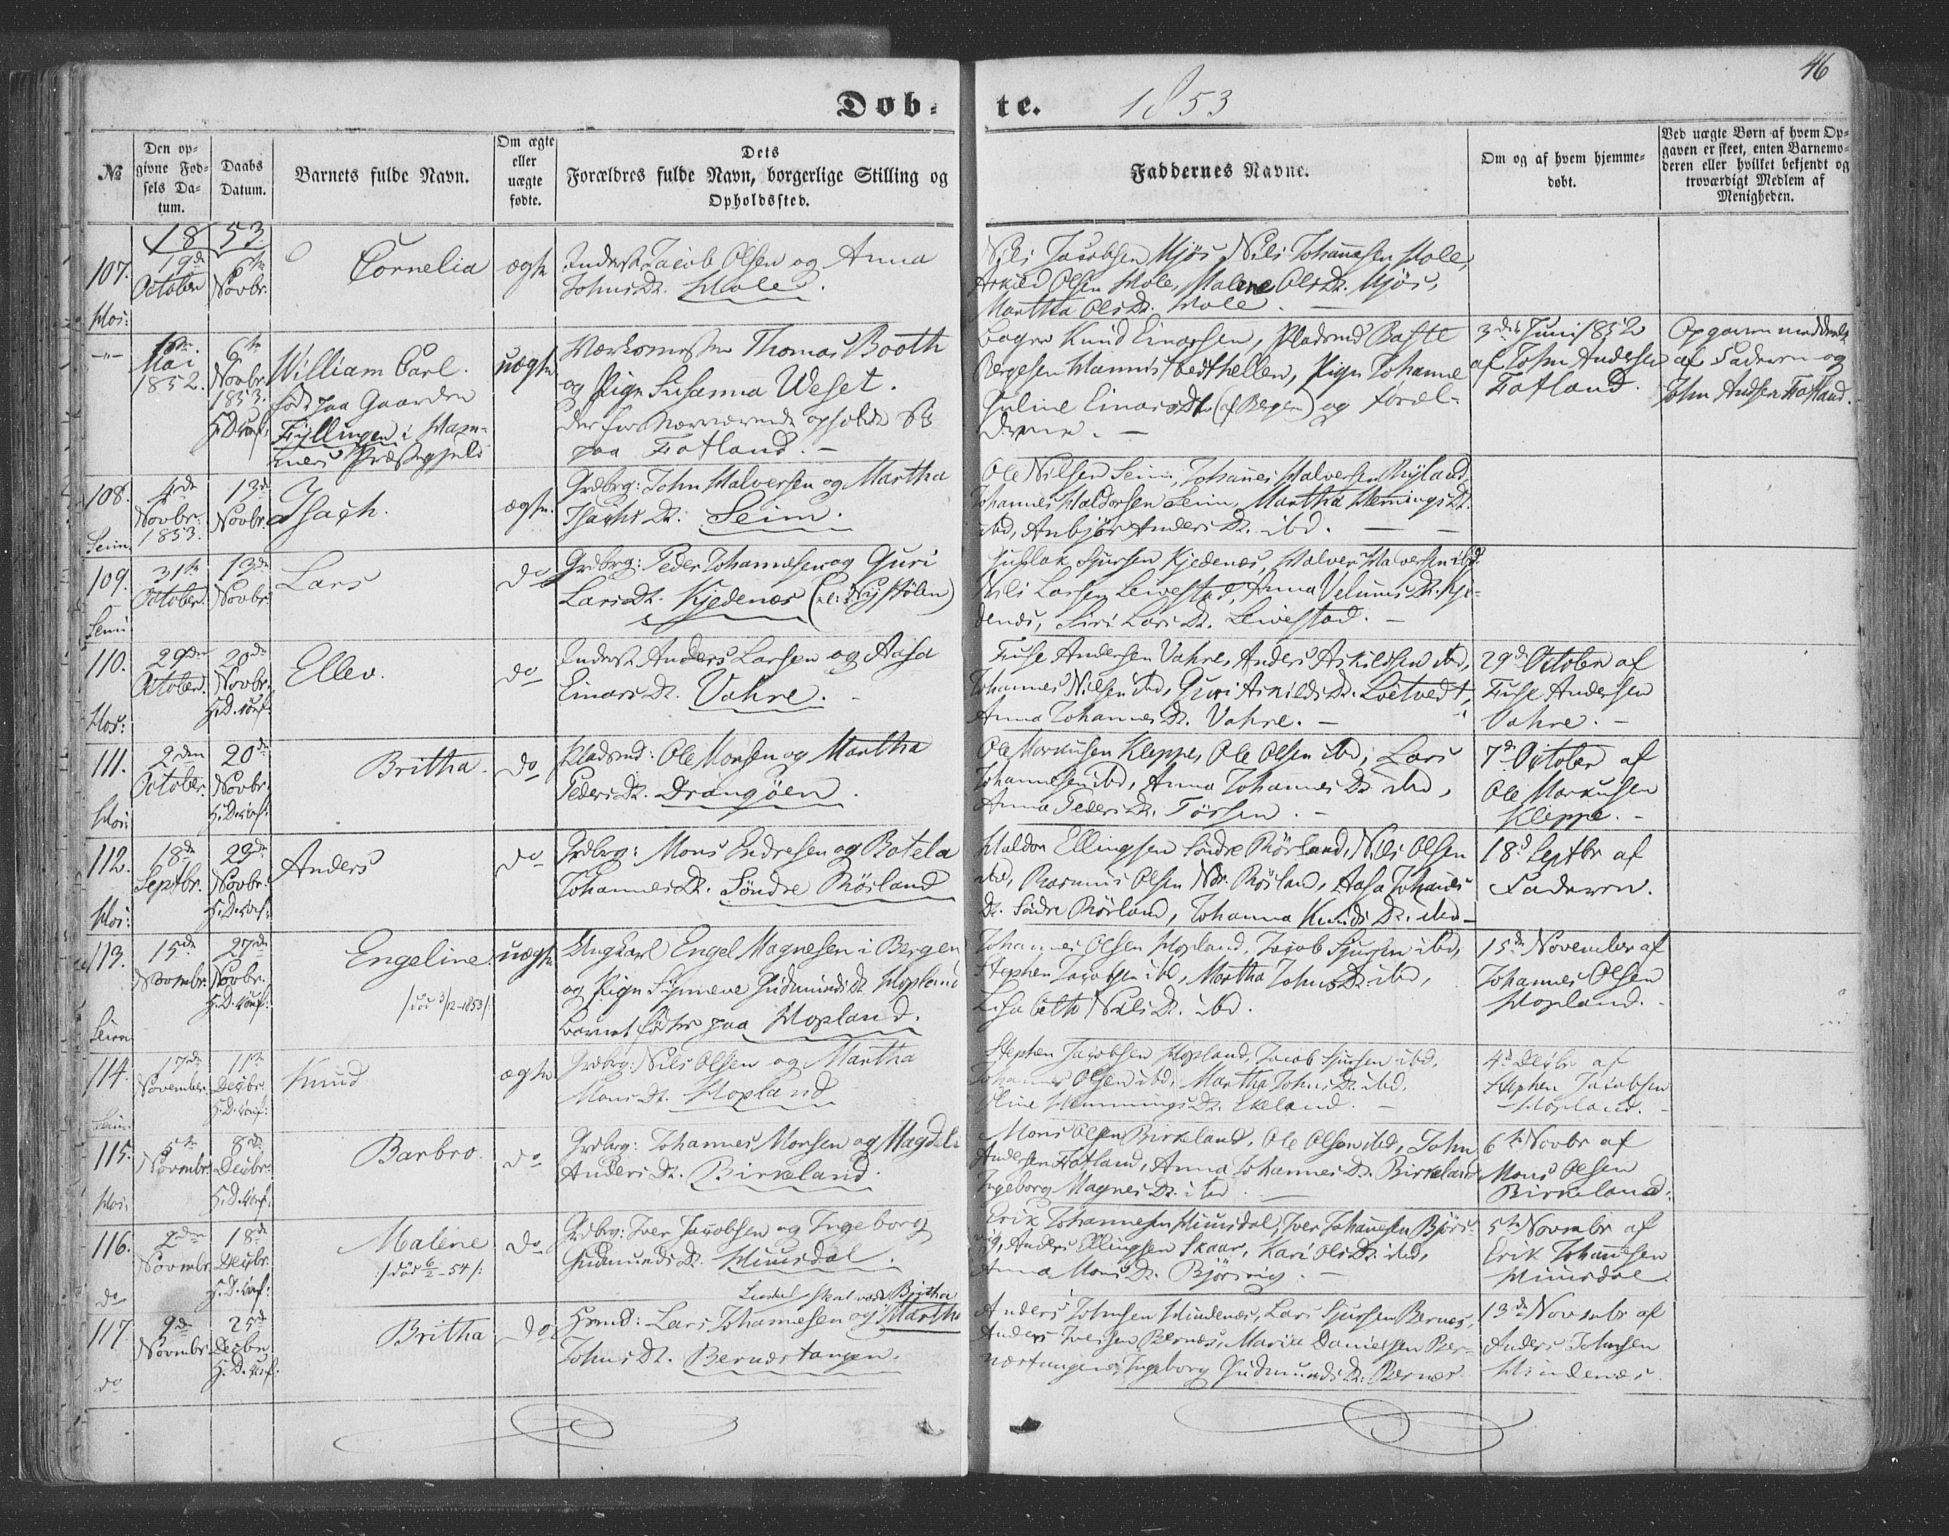 46
Døb-te. 1853
№
Den op-
givne Fød-
sels Da-
tum.
Daabs
Datum.
Barnets fulde Navn.
Om ægte
eller
uægte
fødte.
Dets
Forældres fulde Navn, borgerlige Stilling og
Opholdssted.
Faddernes Navne.
Om og af hvem hjemme-
døbt.
Ved uægte Børn af hvem Op-
gaven er skeet, enten Barnemo-
deren eller hvilket bekjendt og
troværdigt Medlem af
Menigheden.
1853
107.
Hos:
19de
October
6te
Novbr.
Cornelia
ægte
Inderst Jacob Olsen og Anna
Johns Dt. Hole.
Nils Jacobsen Mjøs, Nils Johannesen Hole,
Askild Olsen Hole, Malene Ols Dt. Mjøs,
Martha Ols Dt. Hole. —
—"—
Mai
1852.
6te
Novbr.
1853.
William Carl.
født paa Gaarden
Fyllingen i Ham-
mers Præstegjeld
uægte
Værksmester Thomas Booth
og Pige Susanna Weset.
der for Nærværende opholde sig
paa Fatland. —
Bager Knud Einarsen, Pladsmd Baste
Bergesen Mannis, Pige Johanne
Juline Einars Dt. (af Bergen) og Foræl-
drene. —
3die Juni 1852
af John Andersen
Fatland.
Opgaven meddeelt
af Faderen og
John Andsen Fatland.
108.
Seim
4de
Novbr.
1853.
13de
Novbr.
Isach.
ægte
Grdbrg: John Halversen og Martha
Isachs Dt. Seim.
Ole Nilsen Seim, Johannes Halversen Ryland,
Johannes Haldorsen Seim, Martha Hemings Dt.
ibd, Anbjør Anders Dt. ibd. —
109.
Seim
31te
October.
13de
Novbr.
Lars
do
Grdbrg: Peder Johannesen og Guri
Lars Dt. Kjedenæs
Gutlak Sjursen Kjedenæs, Halver Halversen ibd.
Nils Larsen Leivestad, Anna Vellums Dt. Kje-
denæs, Siri Lars Dt. Leivestad. —
110.
Hos:
29de
October.
20de
Novbr.
Ellev.
do
Inderst Anders Larsen og Aasa
Einars Dt. Vahre.
Fuse Andersen Vahre, Anders Askildsen ibd,
Johannes Nilsen ibd, Guri Askilds Dt. Loitvedt,
Anna Johannes Dt. Vahre. —
29de October af
Fuse Andersen
Vahre. —
111.
Hos:
2den
October.
20de
Novbr.
Britha.
do
Pladsmd: Ole Monsen og Martha
Peders Dt. Drangøen.
Ole Markusen Kleppe, Ole Olsen ibd, Lars
Johannesen ibd, Anna Johannes Dt. ibd,
Anna Peders Dt. Tørsen. —
7de October af
Ole Markusen
Kleppe. —
112.
Hos:
18de
Septbr.
29de
Novbr.
Anders
do
Grdbrg: Mons Endresen og Botela
Johannes Dt. Søndre Rørland
Haldor Ellingsen Søndre Rørland, Nils Olsen
ibd, Rasmus Olsen Ndr. Rørland, Aasa Johannes
Dt. Søndre Rørland, Johanna Knuds Dt. ibd —
18de Septbr af
Faderen.
113.
Seim
15de
Novembr.
27de
Novbr.
Engeline.
/død 3/12-1853/.
uægte
Ungkarl Engel Magnesen i Bergen
og Pige Synneve Gudmunds Dt. Hopland
Barnet født paa Hopland.
Johannes Olsen Hopland, Jacob Sjursen ibd,
Stephen Jacobsen ibd, Martha Johns Dt. ibd,
Lisabeth Nils Dt. ibd.
15de November af
Johannes Olsen
Hopland. —
114.
Seim:
17de
November.
11te
Decbr.
Knud
ægte
Grdbrg: Nils Olsen og Martha
Mons Dt. Hopland
Stephen Jacobsen Hopland, Jacob Sjursen ibd,
Johannes Olsen ibd, Martha Johns Dt. ibd,
Oline Hemmings Dt. Ekeland. —
4de Decbr af
Stephen Jacobsen
Hopland. —
115.
Hos:
5te
Novmbr.
8de
Decbr.
Barbro.
do
Grdbrg: Johannes Monsen og Magdeli
Anders Dt. Birkeland.
Mons Olsen Birkeland, Ole Olsen ibd, John
Andersen Fatland, Anna Johannes Dt. Birkeland
Ingeborg Magnes Dt. ibd. —
6te Novbr af
Mons Olsen
Birkeland.
116.
do
2den
Novmbr.
18de
Decbr.
Malene
:/død 6/2-54/:
do
Grdbrg: Iver Jacobsen og Ingeborg
Gudmunds Dt. Hiimsdal.
Erik Johannesen Hiimsdal, Iver Johannesen Bjørs-
vig, Anders Ellingsen Skaar, Kari Ols Dt. ibd,
Anna Mons Dt. Bjørsvig. —
5te Novmbr af
Erik Johannesen
Hiimsdal.
117.
do
9de
Novmbr.
25de
Decbr.
Britha
do
skal være Britha
Lars Johannesen og Martha
Johns Dt. Bernæstangen.
Anders Johnsen Hindenæs, Lars Sjursen Bernæs,
Anders Iversen Bernæs, Marite Danielsen Ber-
næstangen, Ingeborg Gudmunds Dt. Bernæs.
13de Novmbr af
Anders Johnsen
Hindenæs.